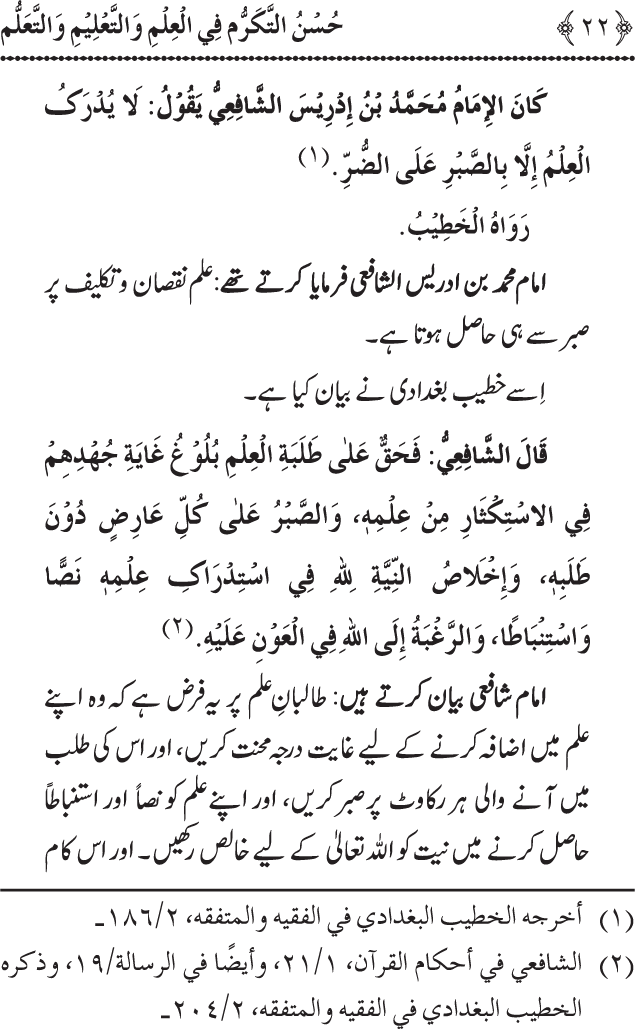 ﴿٢٢﴾ حُسْنُ التَّكَرُّم فِي الْعِلْمِ وَالتَّعْلِيْمِ وَالتَّعَلُّم
كَانَ الإِمَامُ مُحَمَّدُ بْنُ إِدْرِيْسَ الشَّافِعِيُّ يَقُوْلُ: لَا يُدْرَكُ
الْعِلْمُ إِلَّا بِالصَّبْرِ عَلَى الضُّرِّ.(١)
رَوَاهُ الْخَطِيْبُ.
امام محمد بن ادریس الشافعی فرمایا کرتے تھے: علم نقصان و تکلیف پر
صبر سے ہی حاصل ہوتا ہے۔
اِسے خطیب بغدادی نے بیان کیا ہے۔
قَالَ الشَّافِعِيُّ: فَحَقٌّ عَلٰى طَلَبَةِ الْعِلْمِ بُلُوْغُ غَايَةِ جُهْدِهِمْ
فِي الاسْتِكْثَارِ مِنْ عِلْمِهٖ، وَالصَّبْرُ عَلٰى كُلِّ عَارِضٍ دُوْنَ
طَلَبِهٖ، وَإِخْلَاصُ النِّيَّةِ لِلّٰهِ فِي اسْتِدْرَاكِ عِلْمِهٖ نَصًّا
وَاسْتِنْبَاطًا، وَالرَّغْبَةُ إِلَى اللهِ فِي الْعَوْنِ عَلَيْهِ.(٢)
امام شافعی بیان کرتے ہیں: طالبانِ علم پر یہ فرض ہے کہ وہ اپنے
علم میں اضافہ کرنے کے لیے غایت درجہ محنت کریں، اور اس کی طلب
میں آنے والی ہر رکاوٹ پر صبر کریں، اور اپنے علم کو نصاً اور استنباطاً
حاصل کرنے میں نیت کو اللہ تعالیٰ کے لیے خالص رکھیں۔ اور اس کام
(١) أخرجه الخطيب البغدادي في الفقيه والمتفقه، ١٨٦/٢۔
(٢) الشافعي في أحكام القرآن، ٢١/١، وأيضًا في الرسالة/١٩، وذكره
الخطيب البغدادي في الفقيه والمتفقه، ٢٠٤/٢۔